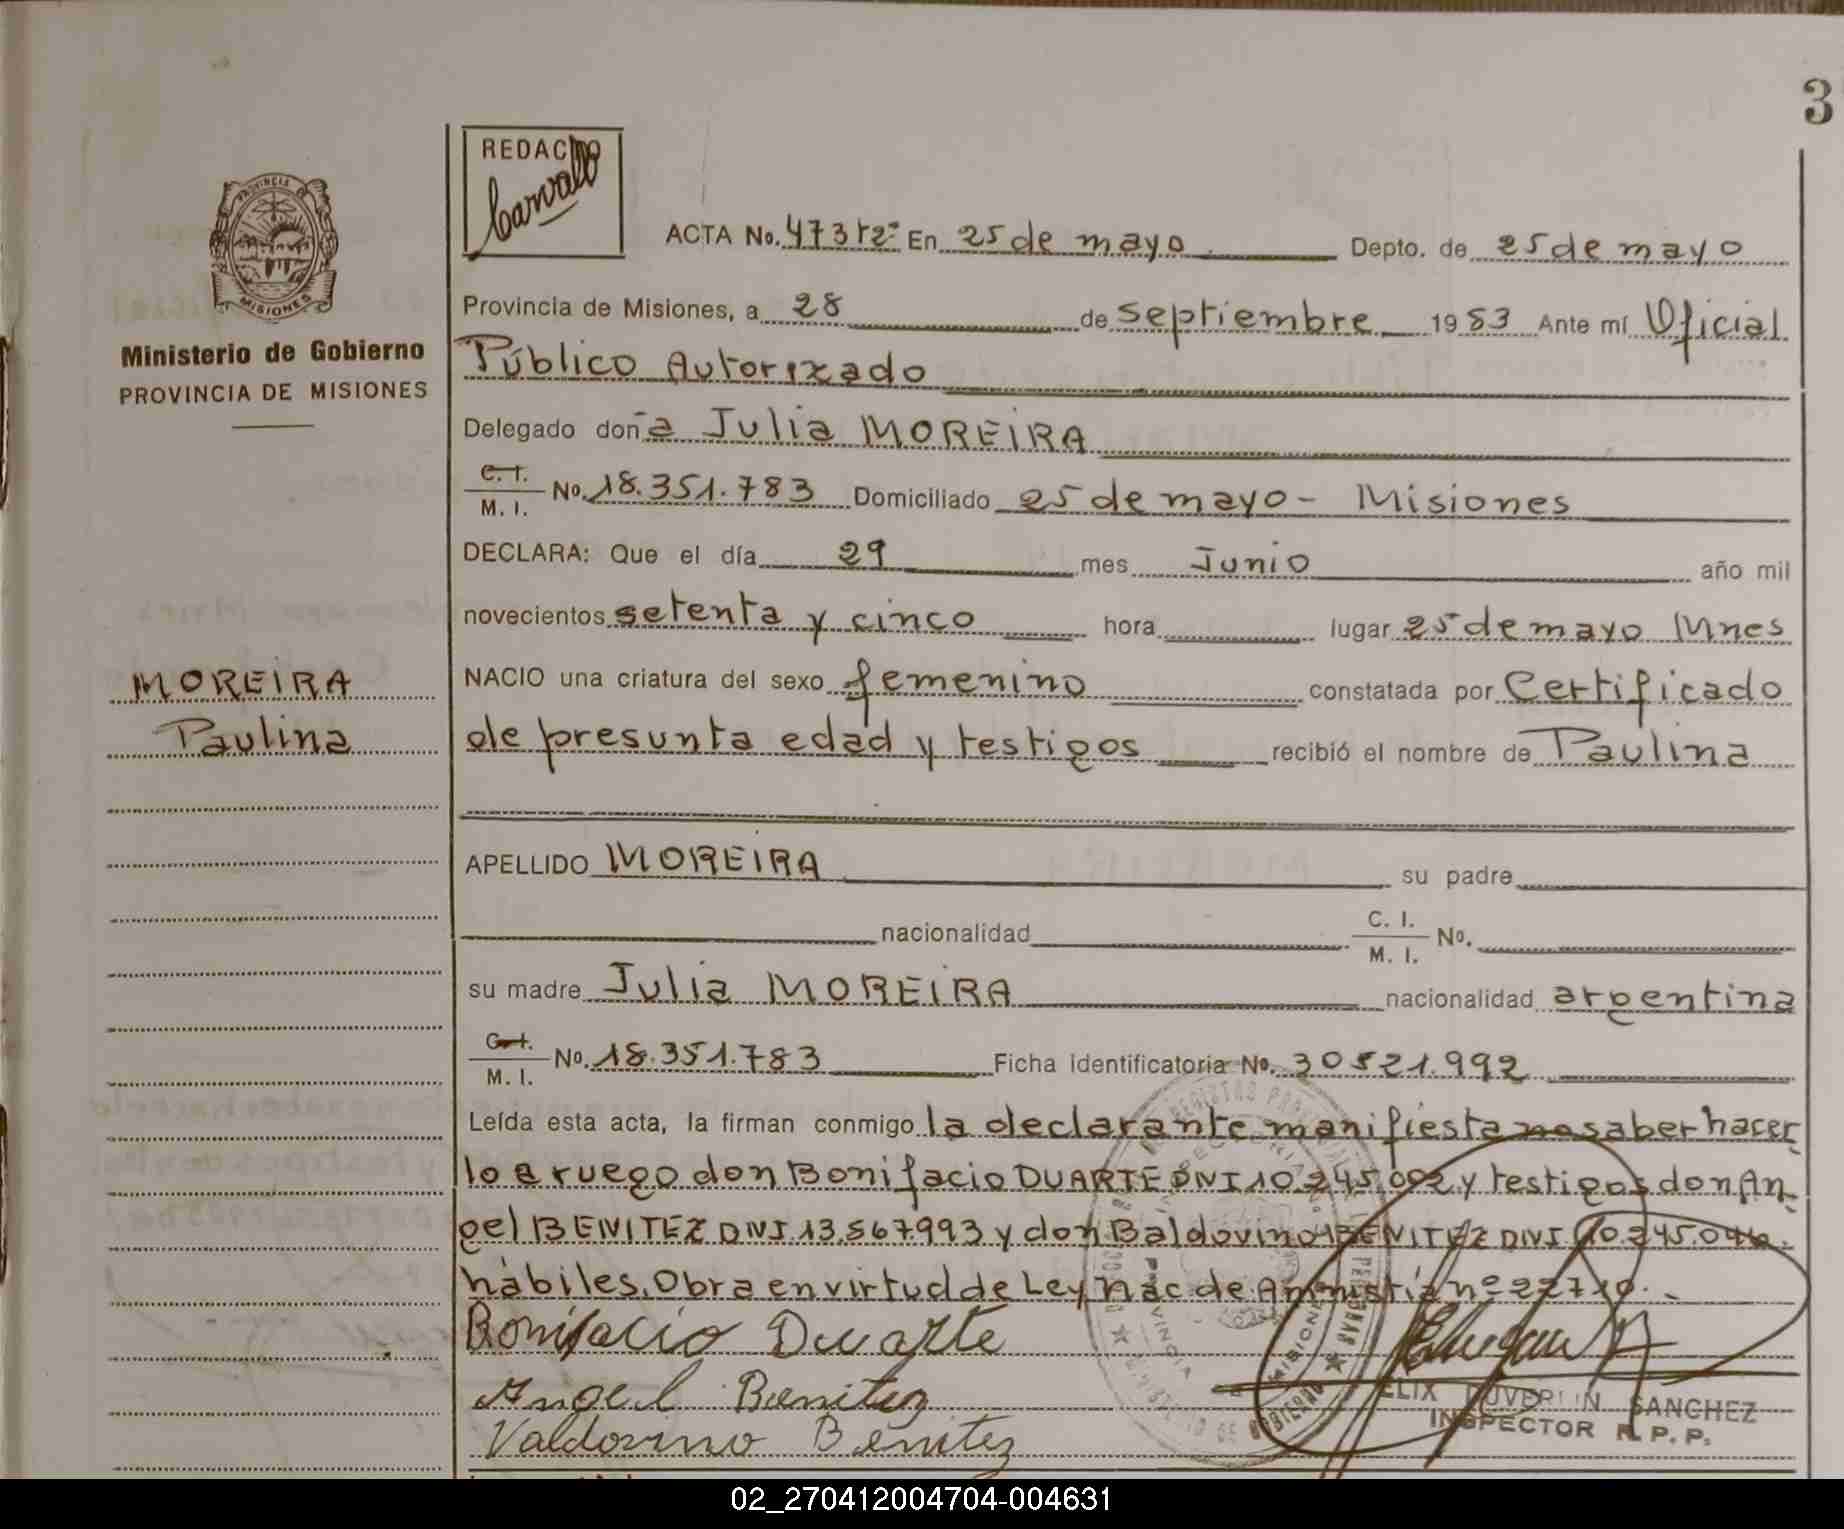 3
REDACTO
Carvallo
PROVINCIA
MISIONES
Ministerio de Gobierno
PROVINCIA DE MISIONES
ACTA No. 473 tº2º En 25 de mayo Depto. de 25 de mayo
Provincia de Misiones, a 28 de septiembre 1983 Ante mí Oficial
Público Autorizado
Delegado doña Julia MOREIRA
C. I.
M. I. No. 18.351.783 Domiciliado 25 de mayo - Misiones
DECLARA: Que el día 29 mes Junio año mil
novecientos setenta y cinco hora lugar 25 de mayo Mnes
MOREIRA
Paulina
NACIO una criatura del sexo femenino constatada por Certificado
de presunta edad y testigos recibió el nombre de Paulina
APELLIDO MOREIRA su padre
nacionalidad C. I.
M. I. No.
su madre Julia MOREIRA nacionalidad argentina
C. I.
M. I. No. 18.351.783 Ficha identificatoria No. 30521.992
Leída esta acta, la firman conmigo la declarante manifiesta no saber hacer
lo a ruego don Bonifacio DUARTE DNI 10.245.092 y testigos don An-
gel BENITEZ DNI 13.567.993 y don Baldovino BENITEZ DNI 10.245.044
hábiles. Obra en virtud de Ley Nac de Amnistía nº 22710.-
Bonifacio Duarte
Angel Benitez
Valdovino Benitez
SANCHEZ
INSPECTOR R. P. P.
02_270412004704-004631